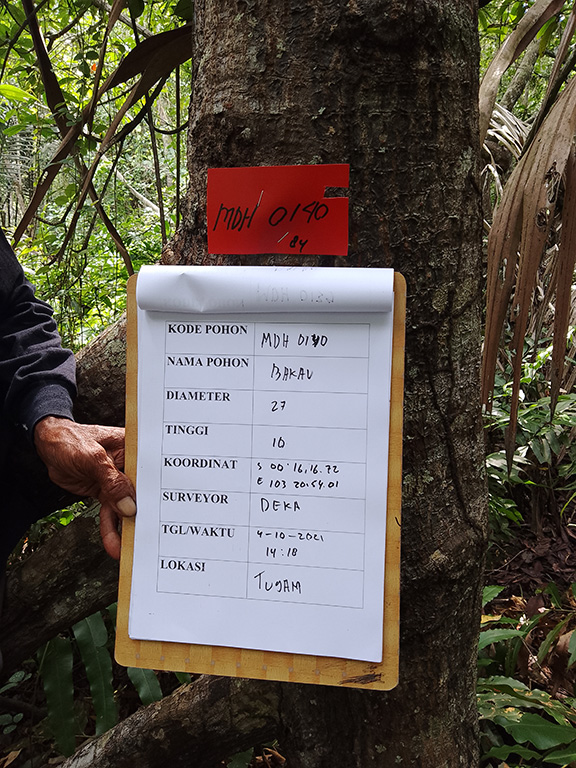 MDH 0140
/84
KODE POHON MDH 0140
NAMA POHON BAKAU
DIAMETER 27
TINGGI 10
KOORDINAT S 00°16,16.72
E 103 20.54.01
SURVEYOR DEKA
TGL/WAKTU 4-10-2021
14:18
LOKASI